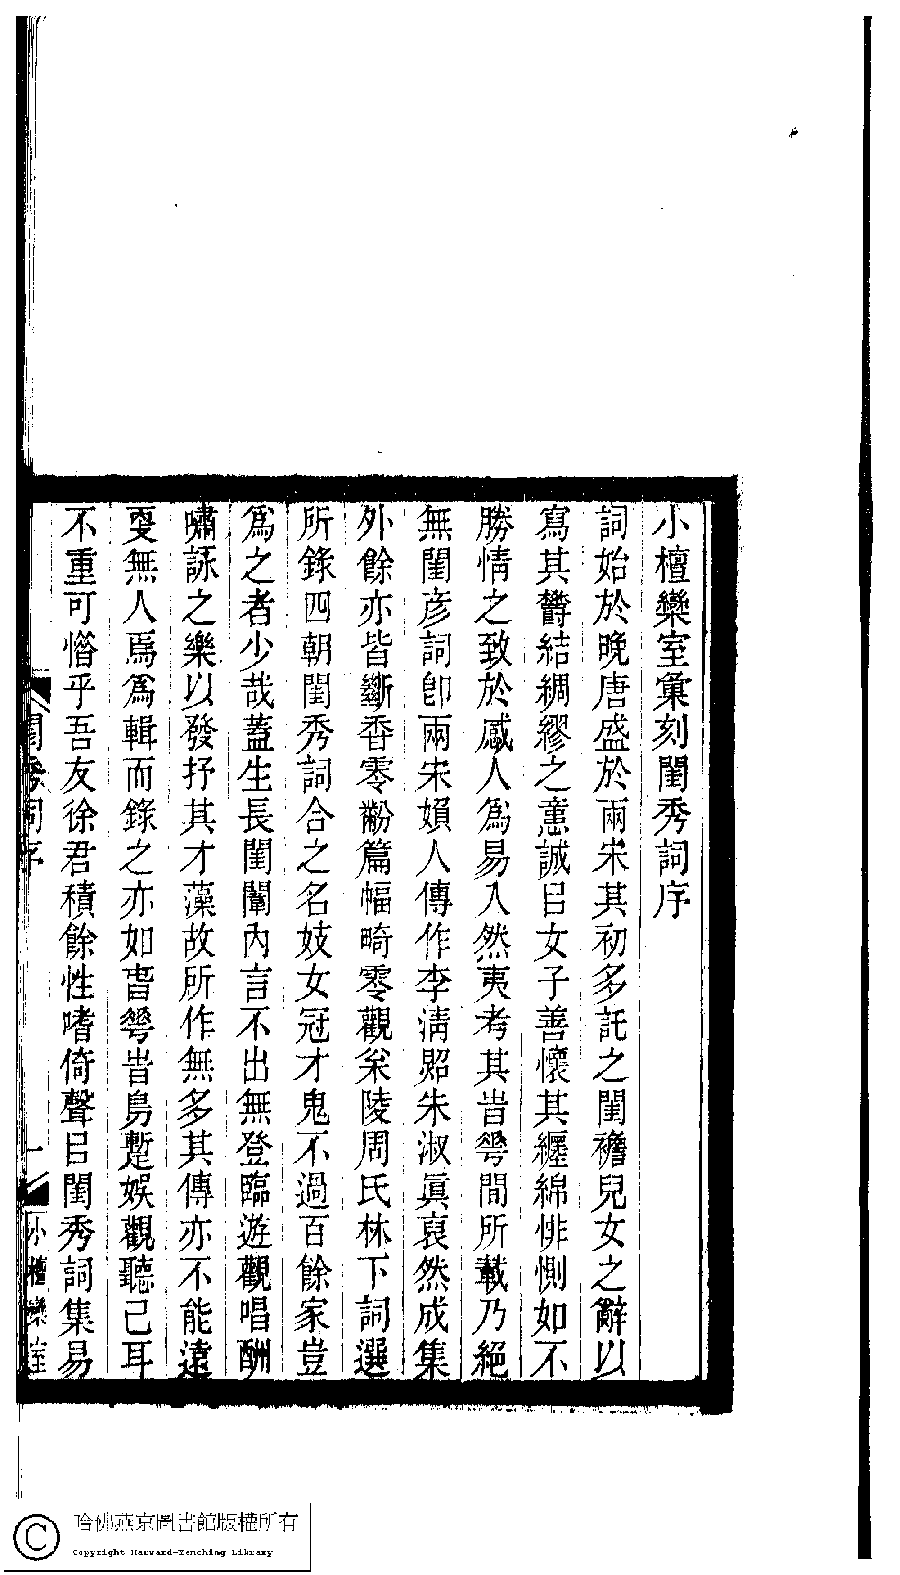 小檀欒室彙刻閨秀詞序
詞始於晚唐盛於兩宋其初多託之閨襜兒女之辭以
寫其鬱結綢繆之悳誠㠯女子善懷其纏綿悱惻如不
勝情之致於感人為易入然夷考其旹蕚間所載乃絕
無閨彥詞卽兩宋嬪人傳作李淸照朱淑眞裒然成集
外餘亦皆斷香零黹篇幅畸零觀秌陵周氏林下詞選
所錄四朝閨秀詞合之名妓女冠才鬼不過百餘家豈
爲之者少哉蓋生長閨闈內言不出無登臨遊觀唱酬
嘯詠之樂以發抒其才藻故所作無多其傳亦不能遠
㪅無人焉爲輯而錄之亦如旾蕚旹鳥蹔娛觀聽已耳
不重可惜乎吾友徐君積餘性嗜倚聲㠯閨秀詞集易
閨秀詞序
一
小檀欒室
哈佛燕京圖書館版權所有
Copyright Harvard-Yenching Library